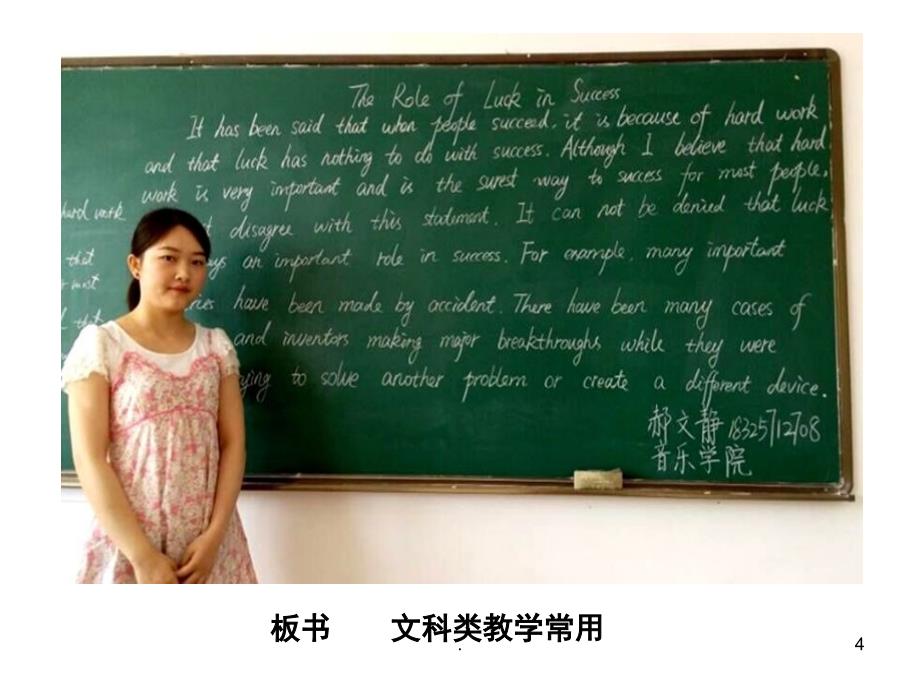 The Role of Luck in Success
It has been said that when people succeed, it is because of hard work
and that luck has nothing to do with success. Although I believe that hard
work is very important and is the surest way to success for most people,
hard work
disagree with this statement. It can not be denied that luck
that
an important role in success. For example, many important
most
have been made by accident. There have been many cases of
that
and inventors making major breakthroughs while they were
to solve another problem or create a different device.
郝文静 18325712708
音乐学院
板书 文科类教学常用
4